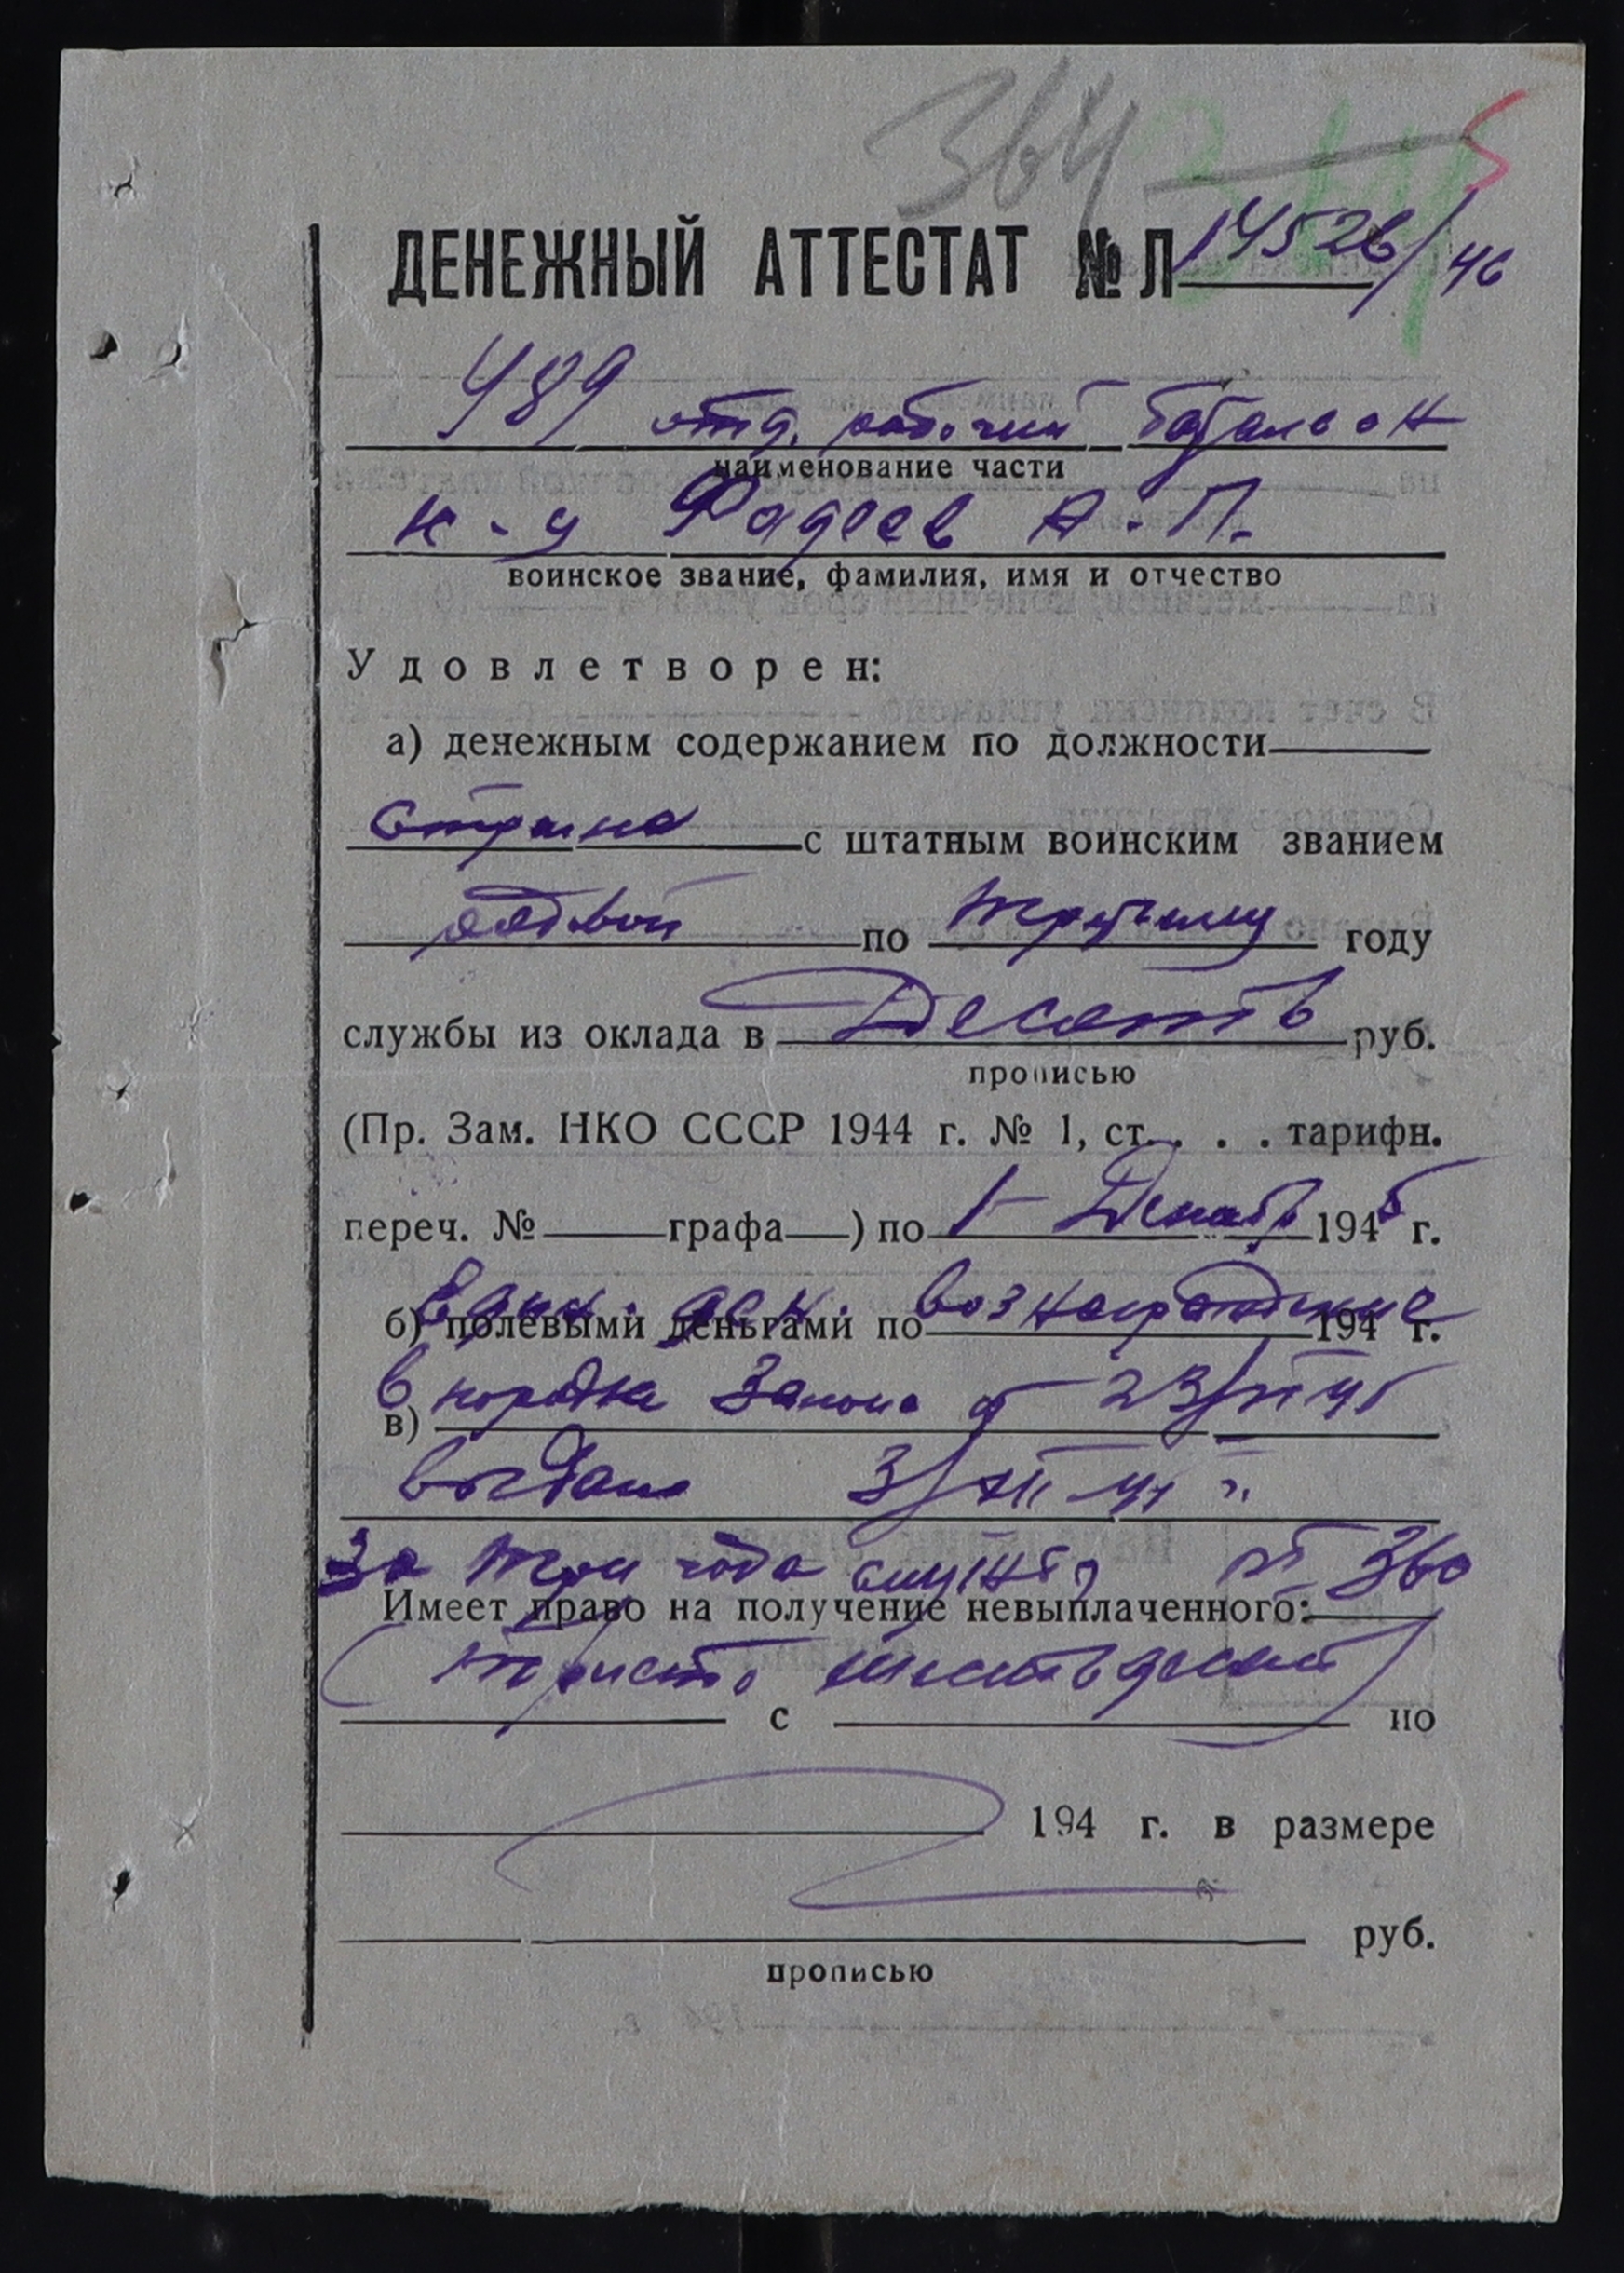 364
ДЕНЕЖНЫЙ АТТЕСТАТ № Л 14526/46
489 отд. рабочий батальон
наименование части
к-у Фадеев А. П.
воинское звание, фамилия, имя и отчество
Удовлетворен:
а) денежным содержанием по должности
с штатным воинским званием
рядовой по третьему году
службы из оклада в Десять руб.
прописью
(Пр. Зам. НКО СССР 1944 г. № 1, ст. . . . тарифн.
переч. № графа ) по 1 Декабр 1945 г.
Един. ден. вознаграждение
б) полевыми деньгами по 194 г.
в) порядке Закона от 23/VI 45
выдано 3/XII
за три года службы 360
Имеет право на получение невыплаченного:
(триста шестьдесят)
с по
194 г. в размере
руб.
прописью